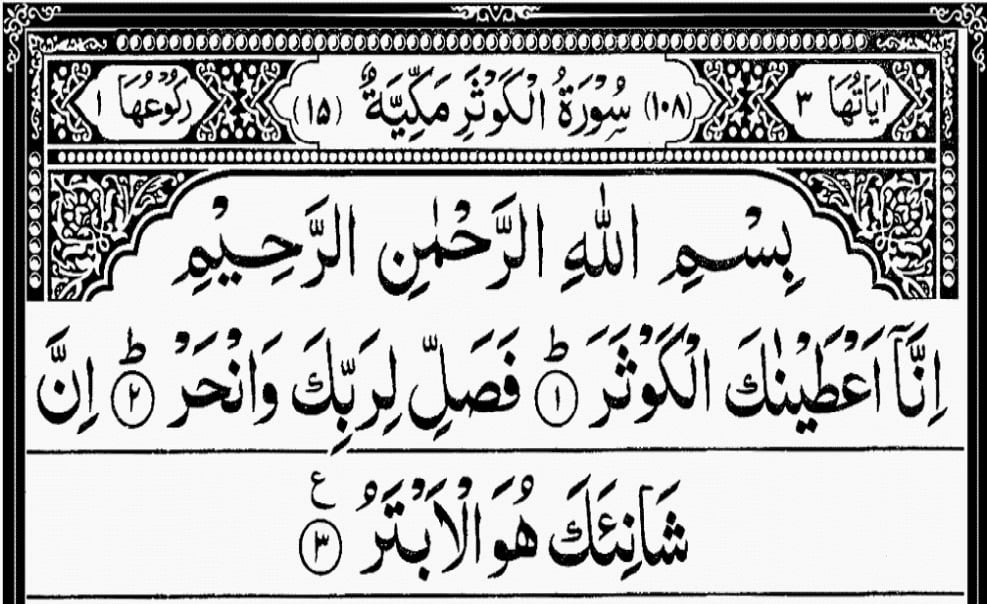 اٰيَاتُهَا ٣ (١٠٨) سُوْرَةُ الْكَوْثَرِ مَكِّيَّةٌ (١٥) رَكُوْعُهَا ١
بِسْمِ اللّٰهِ الرَّحْمٰنِ الرَّحِيْمِ
اِنَّاۤ اَعْطَيْنٰكَ الْكَوْثَرَ ؕ‏ ﴿١﴾ فَصَلِّ لِرَبِّكَ وَانْحَرْ ؕ‏ ﴿٢﴾ اِنَّ
شَانِئَكَ هُوَ الْاَبْتَرُ ﴿٣﴾ ع